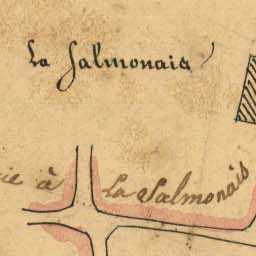 La Salmonais
ie à La Salmonais